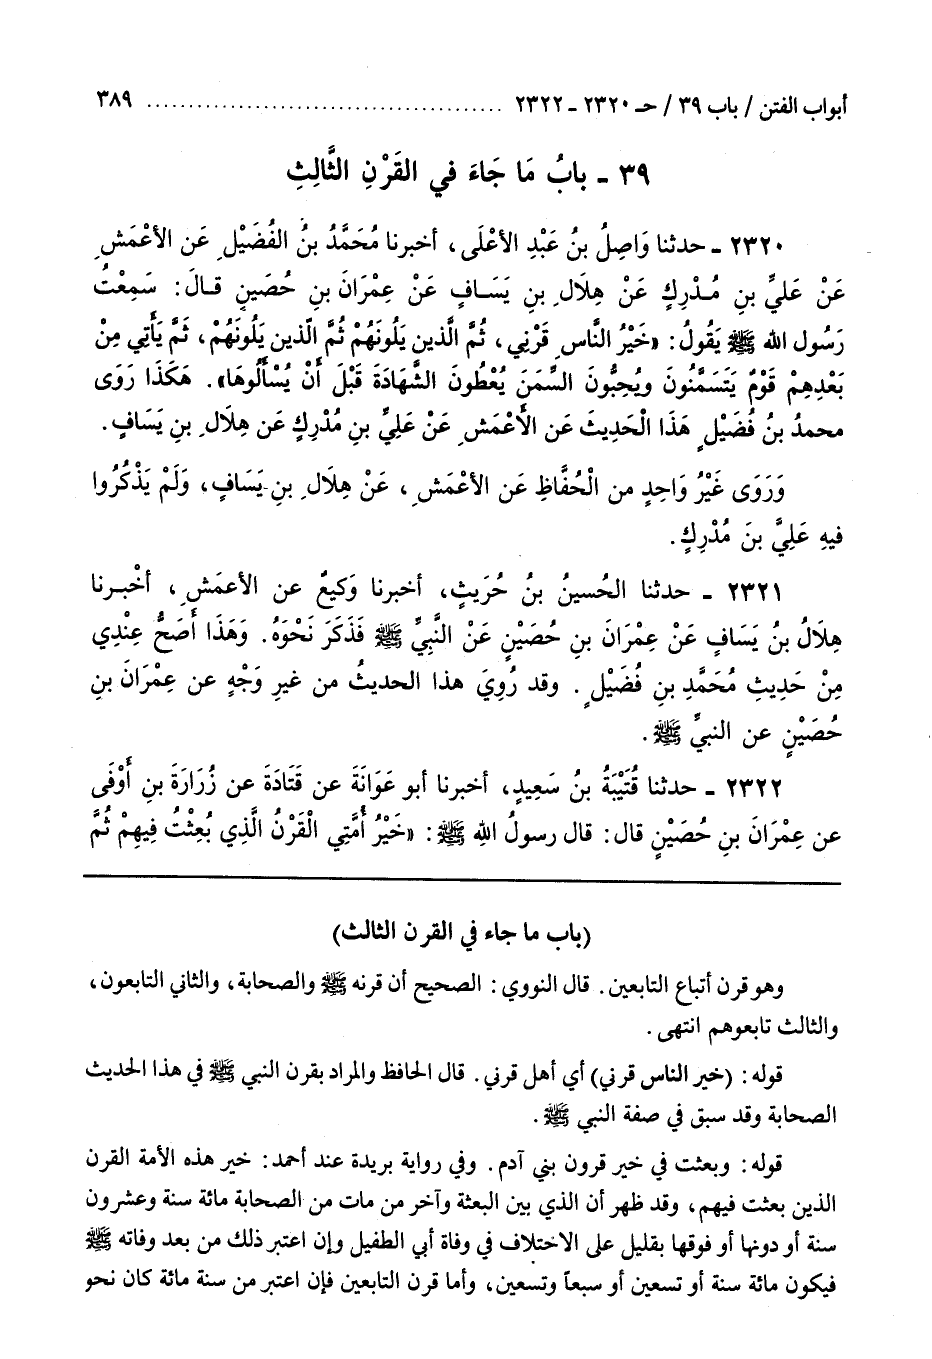 أبواب الفتن / باب ٣٩ / حـ ٢٣٢٠ ـ ٢٣٢٢ ........................................... ٣٨٩
٣٩ ـ بابُ مَا جَاءَ في القَرْنِ الثَّالِثِ
٢٣٢٠ ـ حدثنا وَاصِلُ بنُ عَبْدِ الأعْلَى، أخبرنا مُحَمَّدُ بنُ الفُضَيْلِ عَن الأعْمَشِ
عَنْ عَلِيِّ بنِ مُدْرِكٍ عَنْ هِلَالِ بنِ يَسَافٍ عَنْ عِمْرَانَ بنِ حُصَينٍ قالَ: سَمِعْتُ
رَسُول الله ﷺ يَقُولُ: «خَيْرُ النَّاسِ قَرْنِي، ثُمَّ الَّذينَ يَلُونَهُمْ ثُمَّ الّذين يَلُونَهُم، ثَمَّ يَأْتِي مِنْ
بَعْدِهِمْ قَوْمٌ يَتَسَمَّنُونَ ويُحِبُّونَ السِّمَنَ يُعْطُونَ الشَّهَادَةَ قَبْلَ أَنْ يُسْأَلُوهَا». هَكَذَا رَوَى
محمدُ بنُ فُضَيْلٍ هَذَا الْحَدِيثَ عَن الأَعْمَشِ عَنْ عَلِيِّ بنِ مُدْرِكٍ عَن هِلَالِ بنِ يَسَافٍ.
وَرَوَى غَيْرُ وَاحِدٍ من الْحُفَّاظِ عَن الأعْمَشِ، عَنْ هِلَالِ بنِ يَسَافٍ، وَلَمْ يَذْكُرُوا
فيهِ عَلِيَّ بنَ مُدْرِكٍ.
٢٣٢١ ـ حدثنا الحُسينُ بنُ حُرَيثٍ، أخبرنا وَكيعٌ عن الأعمَشِ، أخْبـرنا
هِلَالُ بنُ يَسَافٍ عَنْ عِمْرَانَ بنِ حُصَيْنٍ عَنْ النَّبِيِّ ﷺ فَذَكَرَ نَحْوَهُ. وَهَذَا أَصَحُّ عِنْدِي
مِنْ حَدِيثِ مُحَمَّدِ بنِ فُضَيْلٍ. وقد رُوِيَ هذا الحديثُ من غيرِ وَجْهٍ عن عِمْرَانَ بنِ
حُصَيْنٍ عن النبيِّ ﷺ.
٢٣٢٢ ـ حدثنا قُتَيْبَةُ بنُ سَعِيدٍ، أخبرنا أبو عَوَانَةَ عن قَتَادَةَ عن زُرَارَةَ بنِ أَوْفَى
عن عِمْرَانَ بنِ حُصَيْنٍ قال: قال رسولُ اللهِ ﷺ: «خَيْرُ أُمَّتِي الْقَرْنُ الَّذِي بُعِثْتُ فِيهِمْ ثُمَّ
(باب ما جاء في القرن الثالث)
وهو قرن أتباع التابعين. قال النووي: الصحيح أن قرنه ﷺ والصحابة، والثاني التابعون،
والثالث تابعوهم انتهى.
قوله: (خير الناس قرني) أي أهل قرني. قال الحافظ والمراد بقرن النبي ﷺ في هذا الحديث
الصحابة وقد سبق في صفة النبي ﷺ.
قوله: وبعثت في خير قرون بني آدم. وفي رواية بريدة عند أحمد: خير هذه الأمة القرن
الذين بعثت فيهم، وقد ظهر أن الذي بين البعثة وآخر من مات من الصحابة مائة سنة وعشرون
سنة أو دونها أو فوقها بقليل على الاختلاف في وفاة أبي الطفيل وإن اعتبر ذلك من بعد وفاته ﷺ
فيكون مائة سنة أو تسعين أو سبعاً وتسعين، وأما قرن التابعين فإن اعتبر من سنة مائة كان نحو